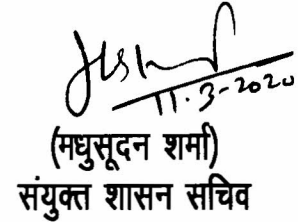 11.3-2020
(मधुसूदन शर्मा)
संयुक्त शासन सचिव